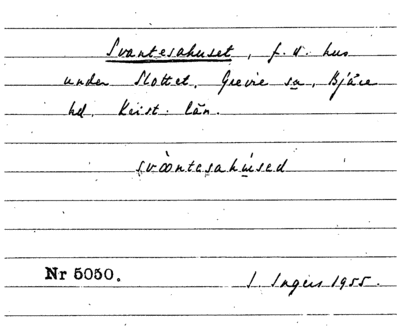 Svantesahuset, f.d. hus
under Slottet, Grevie sn, Bjäre
hd. Krist. län.
svòntesahúsed
Nr 5050.
I. Ingers 1955.